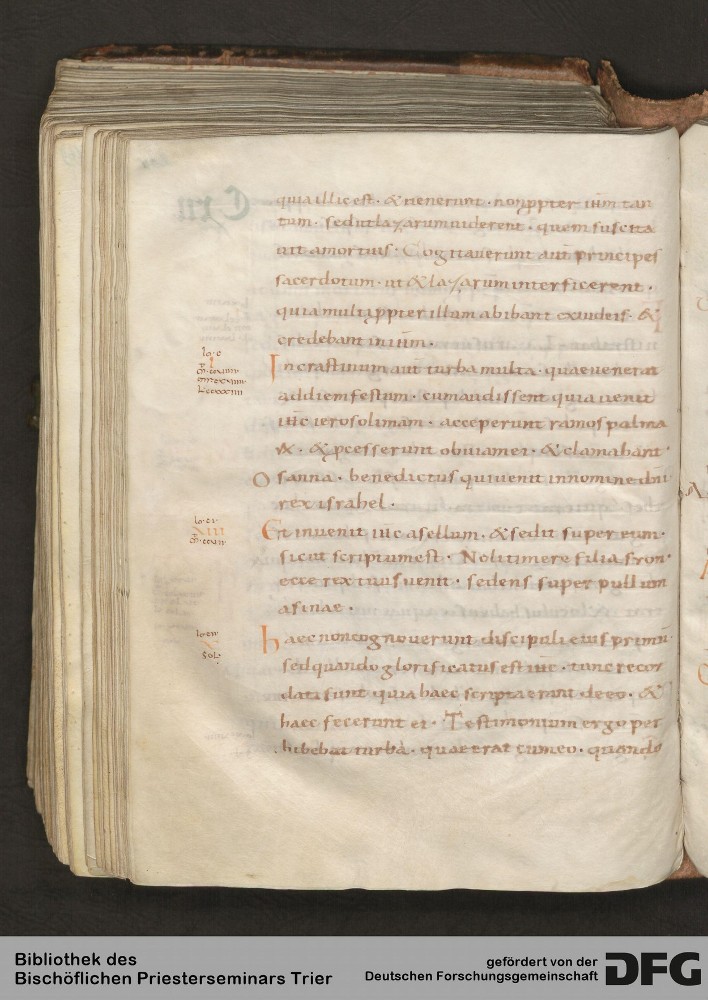 quia illic est · & venerunt · non ppter ihm tan
tum · sed ut lazarum viderent · quem suscita
vit a mortuis · Cogitaverunt aut principes
sacerdotum · ut & lazarum interficerent ·
quia multi ppter illum abibant ex iudeis · &
credebant in ihm ·
In crastinum aut turba multa · quae venerat
ad diem festum · cum audissent quia venit
ihc ierosolimam · acceperunt ramos palma
rx · & pcesserunt obviam ei · & clamabant ·
Osanna · benedictus qui venit in nomine dni
rex israhel ·
Et invenit ihc asellum · & sedit super eum ·
sicut scriptum est · Noli timere filia syon ·
ecce rex tuus venit · sedens super pullum
asinae ·
haec non cognoverunt discipuli eius primu
sed quando glorificatus est ihc · tunc recor
dati sunt quia haec scripta erant de eo · &
haec fecerunt ei · Testimonium ergo per
hibebat turba · quae erat cum eo · quando
Bibliothek des
Bischöflichen Priesterseminars Trier
gefördert von der
Deutschen Forschungsgemeinschaft
DFG